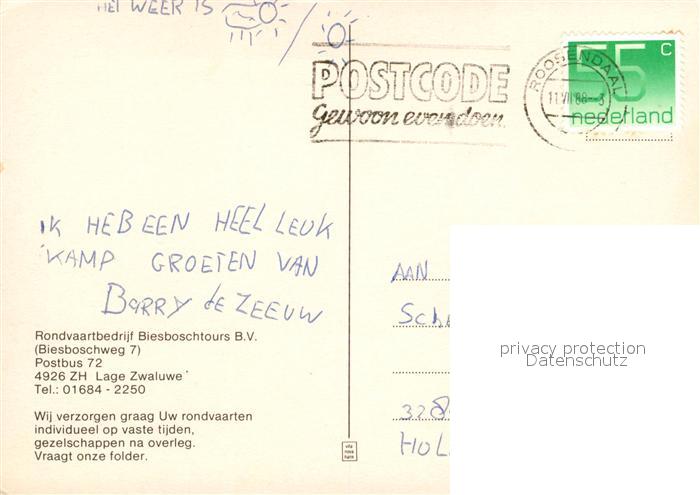 HET WEER IS
POSTCODE
Gewoon even doen.
ROOSENDAAL
11.VII.88-3
55 c
nederland
IK HEB EEN HEEL LEUK
KAMP GROETEN VAN
BARRY de ZEEUW
AAN
Sch
328
HOL
Rondvaartbedrijf Biesboschtours B.V.
(Biesboschweg 7)
Postbus 72
4926 ZH Lage Zwaluwe
Tel.: 01684 - 2250
Wij verzorgen graag Uw rondvaarten
individueel op vaste tijden,
gezelschappen na overleg.
Vraagt onze folder.
privacy protection
Datenschutz